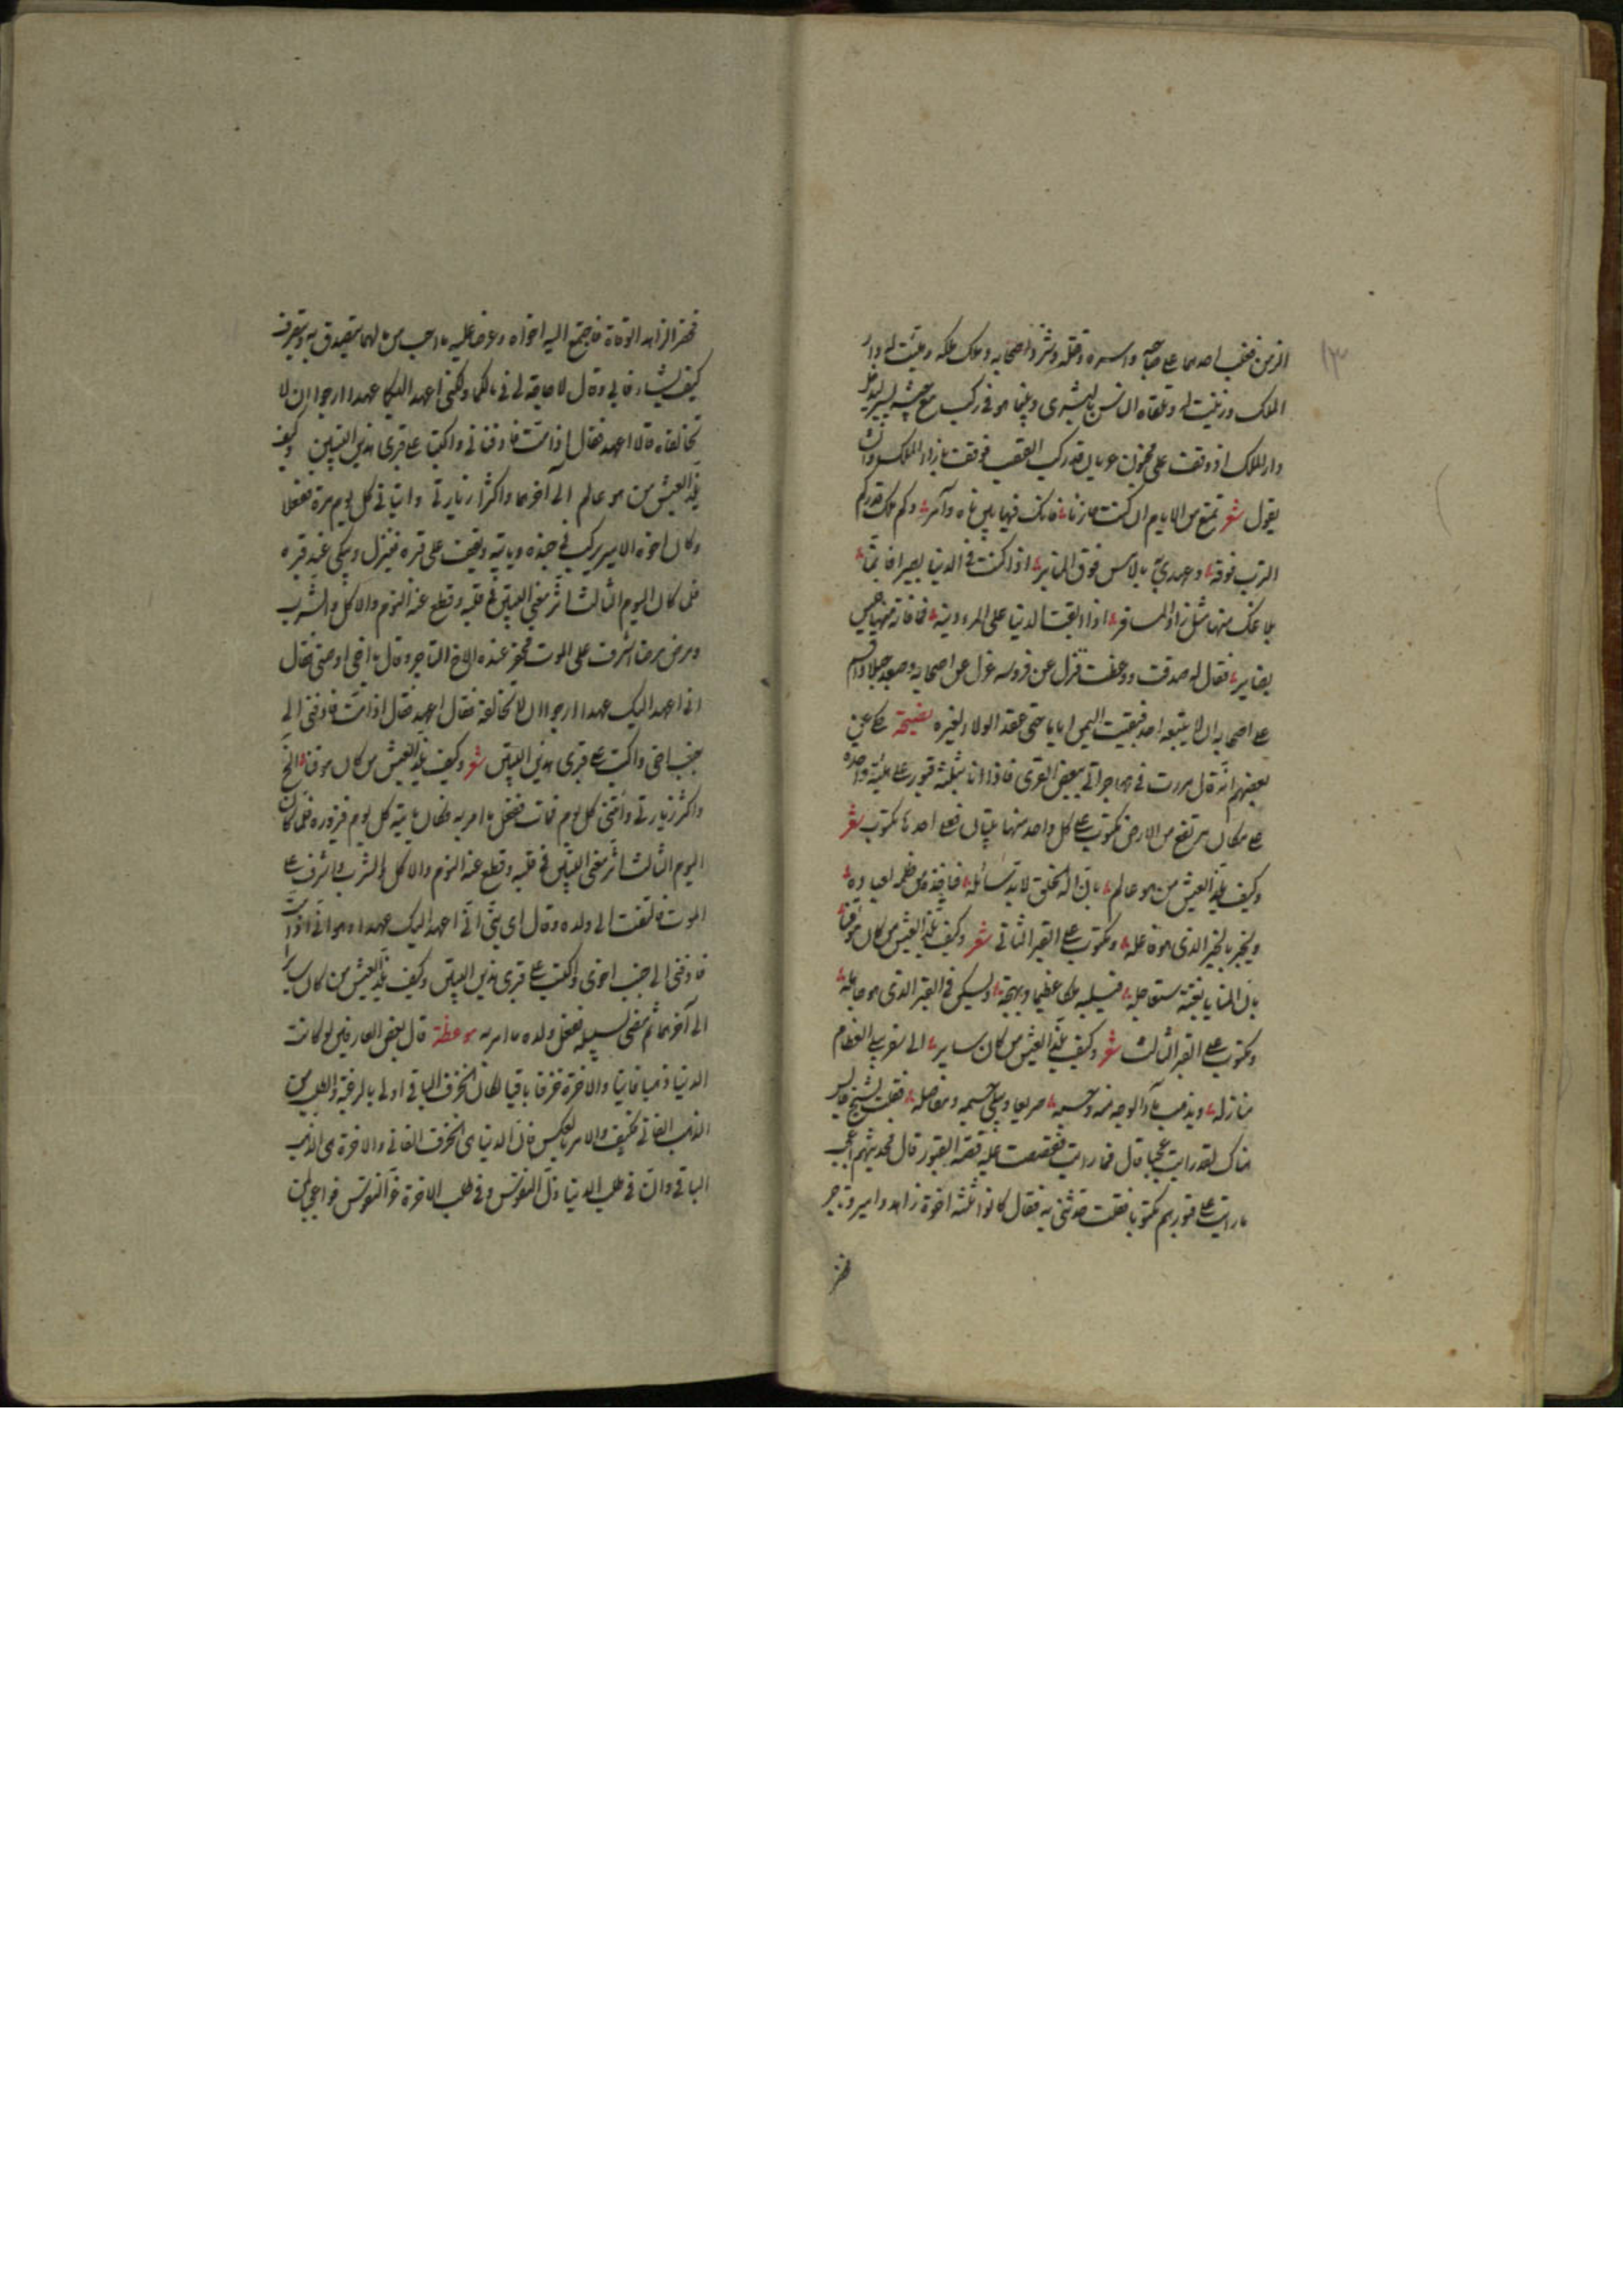 الزمن فغلب احدهما على صاحبه واسره وقتله وشرّد اصحابه وملك ملكه وهيئت له دار
الملك وزينت له وتلقاه الناس بالبشرى وبينما هو فى ركب مع حشم يسير ليدخل
دار الملك اذ وقعت على مجنون عريان قدركب القصب فوقف بازاء الملك وان
يقول شعر تمتع من الايام ان كنت حازما فانك فيها بين ناه وآمر وكم ملك قدركم
الترب فوقه وعهدى به بالامس فوق المنابر اذا كنت فى الدنيا بصيرا فانما
بلاغك منها مثل زاد المسافر اذا ابقت الدنيا على المرء دينه فما فاته منها فليس
بضاير فقال له صدقت ووعظت فنزل عن فرسه عزل عن اصحابه وصعد جبلا واقسم
على اصحابه ان لا يتبعه احد فبقيت اليمن اياما حتى عقد الولا ولغيره نصيحة حكى عن
بعضهم انه قال مررت فى مهاجراتى ببعض القرى فاذا انا بثلثة قبور على هيئة واحدة
على مكان مرتفع من الارض مكتوب على كل واحد منها بيتان فعلى احدها مكتوب شعر
وكيف يلذ العيش من هو عالم بان اله الخلق لابد سائله فياخذ من ظلمه لعباده
ويجز بالخير الذى هو فاعله ومكتوب على القبر الثانى شعر وكيف يلذ العيش من كان موقنا
بان المنايا بغتة ستعاجله فتسلبه ملكا عظيما وبهجة وتسكن فى القبر الذى هو داخله
ومكتوب على القبر الثالث شعر وكيف يلذ العيش من كان سايرا الى سفر يبلى العظام
منازله ويذهب مآء الوجه منه وحسنه سريعا ويبلى جسمه ومفاصله فقلت لشيخ جالس
هناك لقد رايت عجبا قال فما رايت فقصصت عليه قصة القبور قال فحديثهم اعجب
ما رايت على قبورهم مكتوبا فقلت حدثنى به فقال كانوا ثلثة اخوة زاهد وامير وتاجر
فحضر
فحضر الزاهد الوفاة فاجتمع اليه اخواه وعرضا عليه ما احب من مالهما يتصدق به ويتصرف
كيف يشاء فابى وقال لا حاجة لى فى مالكما ولكنى اعهد اليكما عهدا ارجو ان لا
تخالفاه قالا اعهد فقال اذا مت فادفنانى واكتبا على قبرى هذين البيتين وكيف
يلذ العيش من هو عالم الى آخرهما واكثرا زيارتى وأتيانى كل يوم مرة ففعلا
وكان اخوه الامير يركب فى جنده وياتيه ويقف على قبره فينزل ويبكى عند قبره
فلما كان اليوم الثالث اثر معنى البيتين فى قلبه وقطع عنه النوم والاكل والشرب
ومرض مرضا اشرف على الموت فحضر عنده الاخ التاجر وقال يا اخى اوصنى فقال
انى اعهد اليك عهدا ارجو ان لا تخالفه فقال اعهد فقال اذا مت فادفنى الى
جنب اخى واكتب على قبرى هذين البيتين شعر وكيف يلذ العيش من كان موقنا الخ
واكثر زيارتى وأتنى كل يوم فمات ففعل ما امر به وكان ياتيه كل يوم فيزوره فلما كان
اليوم الثالث اثر معنى البيتين فى قلبه وقطع عنه النوم والاكل والشرب واشرف على
الموت فالتفت الى ولده وقال اى بنىّ انى اعهد اليك عهدا وهو انى اذا مت
فادفنى الى جنب اخوى واكتب على قبرى هذين البيتين وكيف يلذ العيش من كان سايرا
الى آخرهما ثم مضى لسبيله ففعل ولده ما امر به موعظة قال بعض العارفين لو كانت
الدنيا ذهبا فانيا والاخرة خزفا باقيا لكان الخزف الباقى اولى بالرغبة والطلب من
الذهب الفانى فكيف والامر بالعكس فان الدنيا هى الخزف الفانى والاخرة هى الذهب
الباقى وان فى طلب الدنيا ذل النفوس وفى طلب الاخرة عز النفوس فوا عجبا لمن